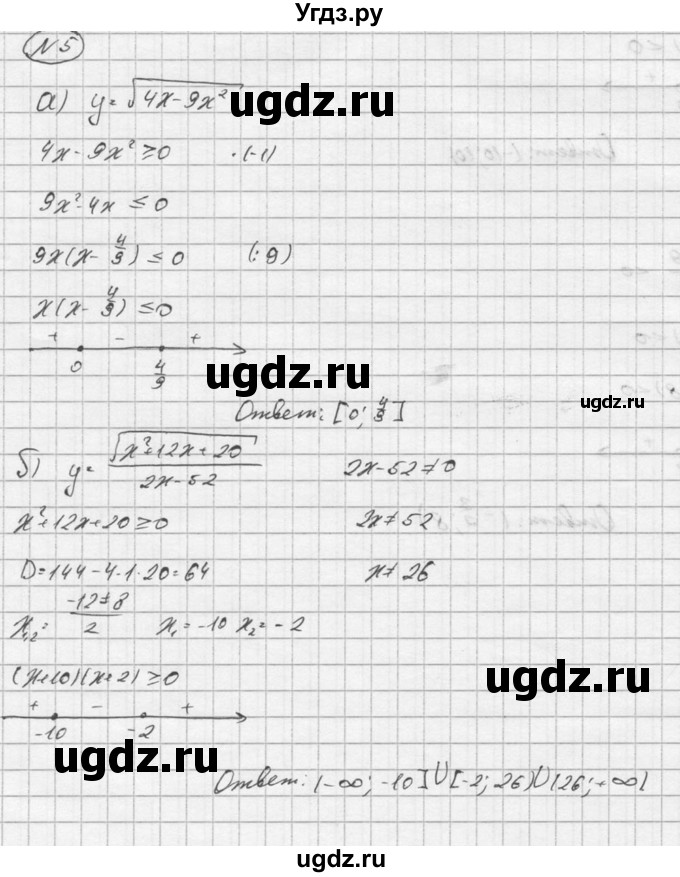 Угдз.ру
N 5
а) y = √4x - 9x²
ugdz.ru
4x - 9x² ≥ 0 · (-1)
9x² - 4x ≤ 0
9x(x - 4/9) ≤ 0 (: 9)
x(x - 4/9) ≤ 0
+ - +
0 4/9
ugdz.ru
ugdz.ru
Ответ: [0; 4/9]
б) y = √x²+12x+20 / 2x-52
2x - 52 ≠ 0
ugdz.ru
x²+12x+20 ≥ 0
2x ≠ 52
D = 144 - 4·1·20 = 64
x ≠ 26
x₁,₂ = -12±8 / 2 x₁ = -10 x₂ = -2
(x+10)(x+2) ≥ 0
ugdz.ru
+ - +
-10 -2
ugdz.ru
Ответ: (-∞; -10] U [-2; 26) U (26; +∞)
ugdz.ru